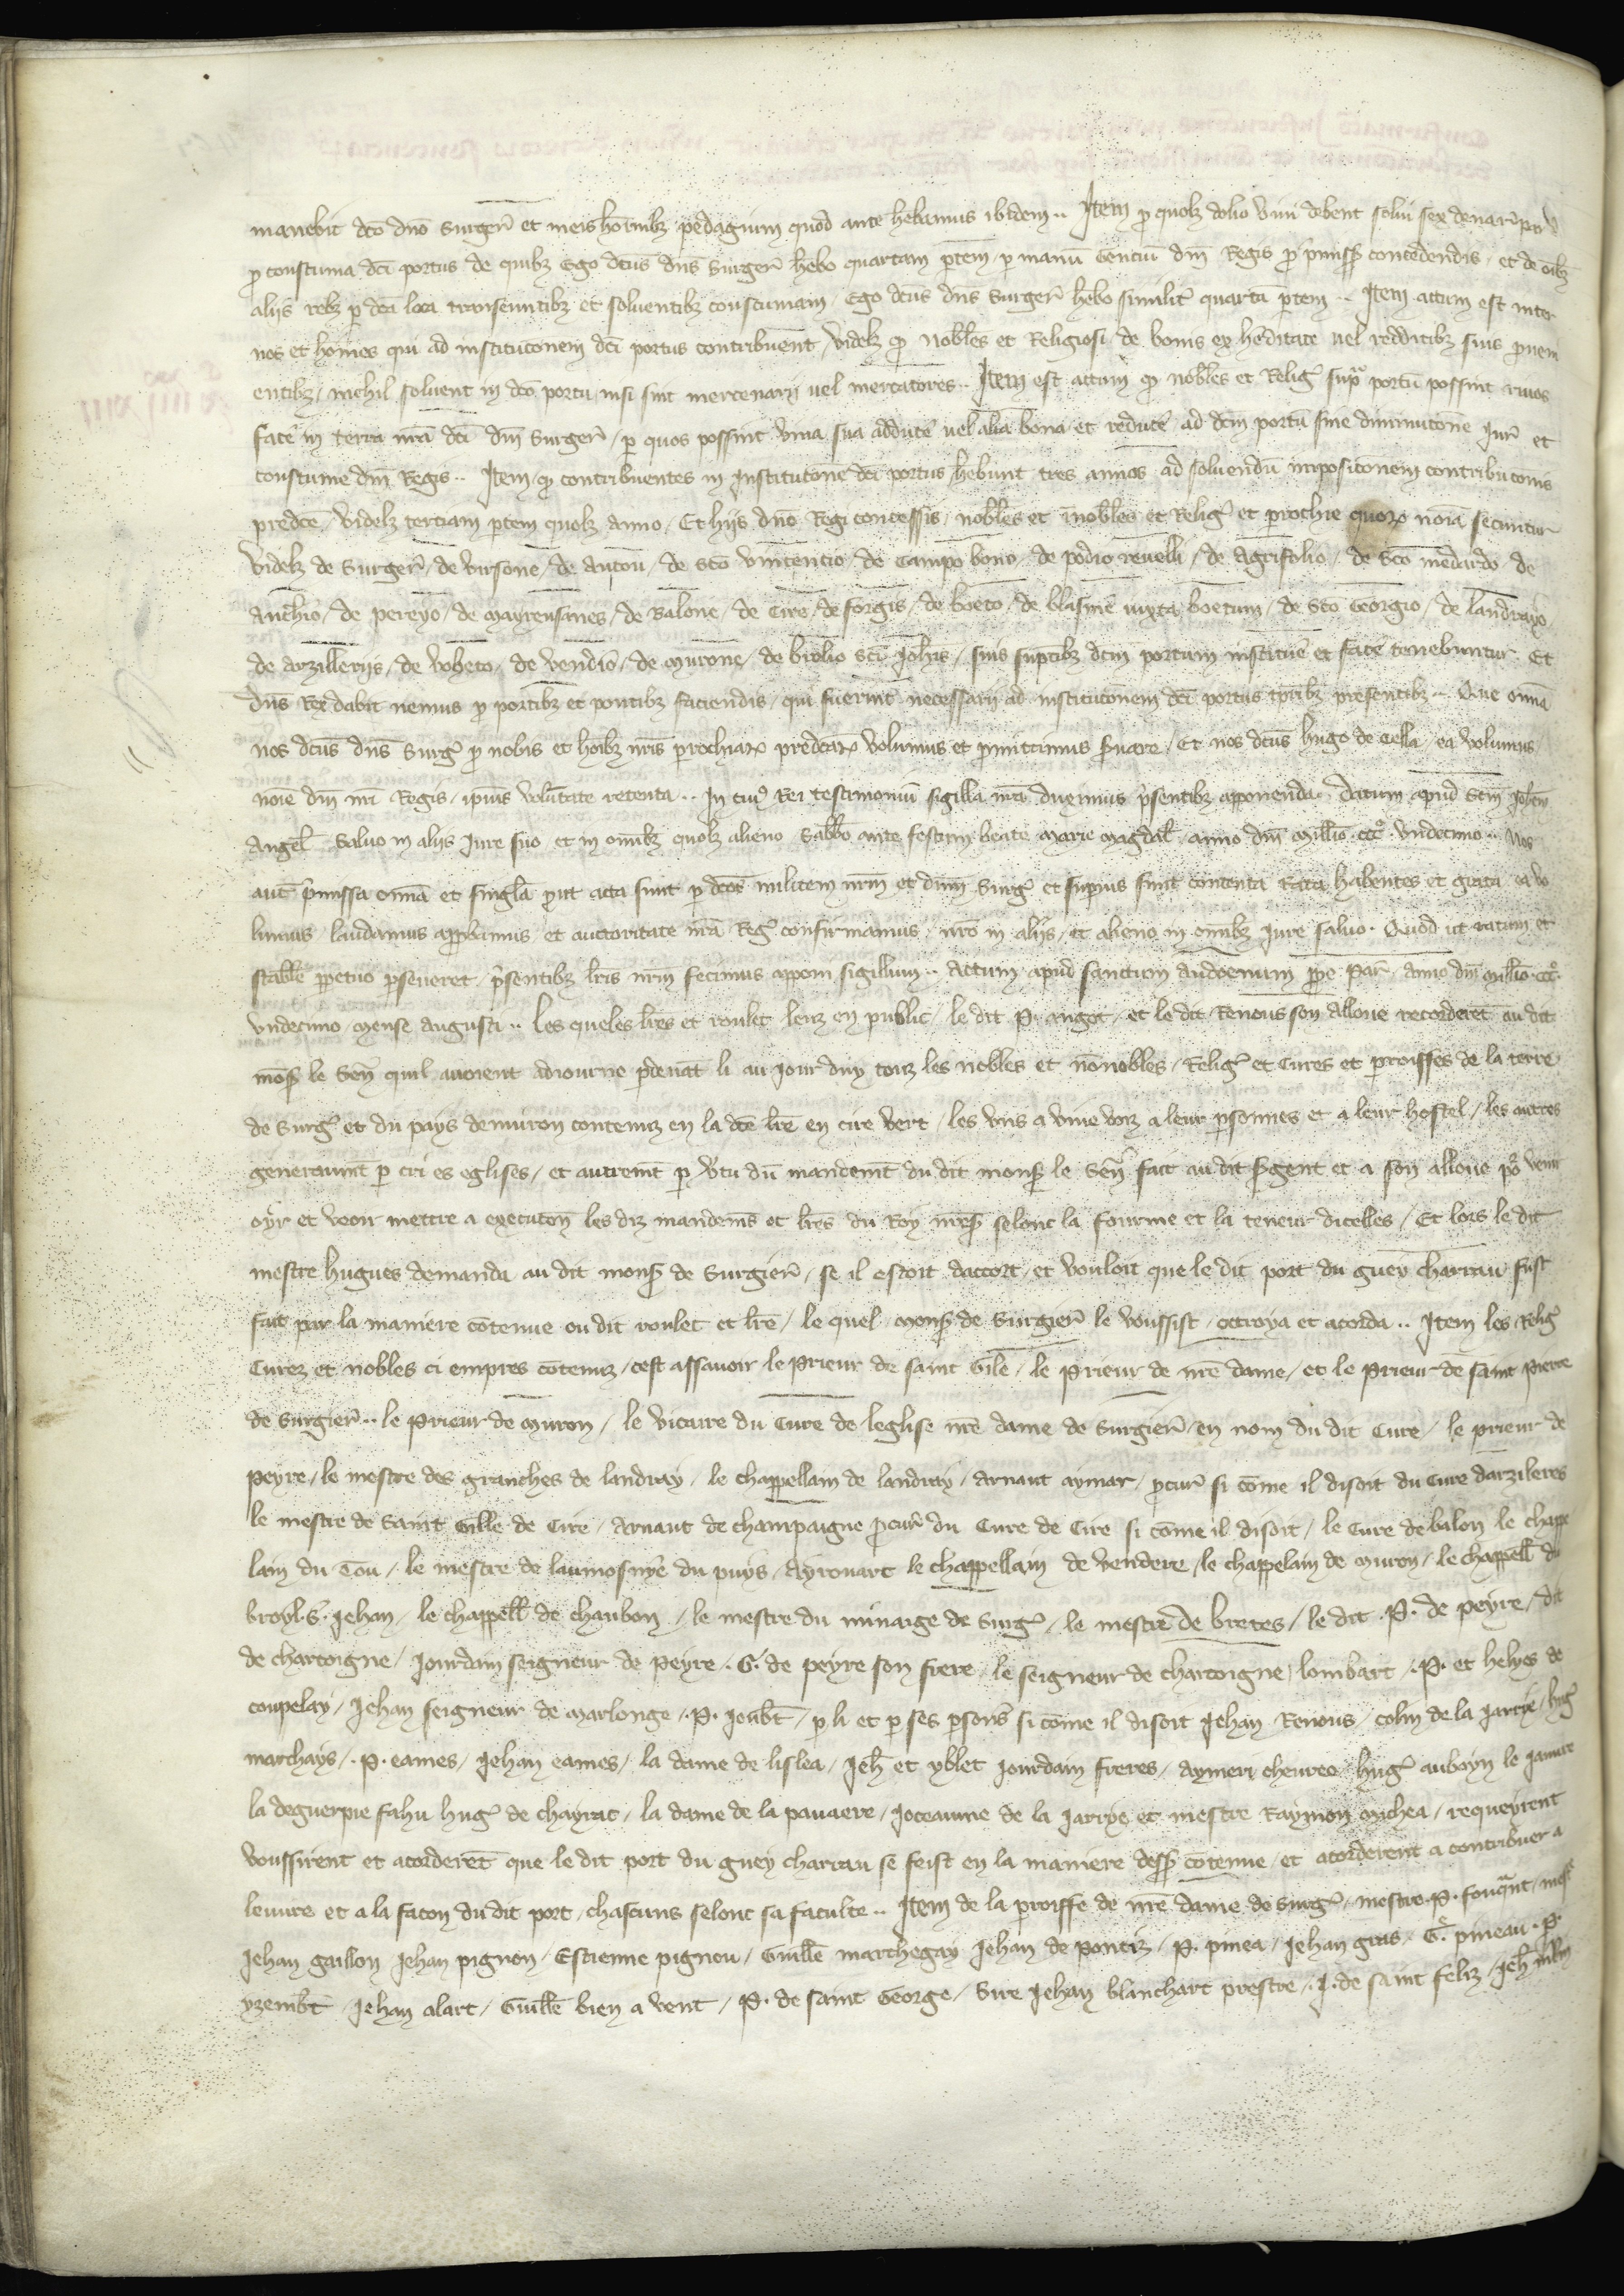 manebit dc̄o dn̄o Surger̄ et meis hōīnibꝫ pedagium quod ante hēbamus ibidem .. Item p quolꝫ dolio vini debent solui sex denar̄
p constuma dc̄i portus de quibꝫ Ego dcūs dn̄s Surger̄ hēbo quartam ptem p manū Gentiū dn̄i Regis p p̄miss̄ concedendis et de oībꝫ
aliis rebꝫ p dc̄a loca transeuntibꝫ et soluentibꝫ constumam Ego dcūs dn̄s Surger̄ hēbo similit̄ quartā ptem .. Item actum est inter
nos et hoīnes qui ad institucōnem dc̄i portus contribuent videlꝫ qp nobl̄es et Religiosi de bonis ex hēditate uel redditibꝫ suis prouen
entibꝫ nichil soluent in dc̄o portu nisi sint mercenarij uel mercatores .. Item est actum qp nobl̄es et Reliḡ sup̄ portū possint riuos
facē in terra nrā dc̄i dn̄i Surger̄ p quos possint vina sua adducē uel alia bona et reducē ad dcm̄ portū sine diminutōne Iur̄ et
constume dn̄i Regis .. Item qp contribuentes in Institutōne dc̄i portus hēbunt tres annos ad soluendū imposicōnem contribucōnis
predcē videlꝫ terciam ptem quolꝫ anno Et hijs dn̄o Regi concessis nobl̄es et īnobl̄es et Reliḡ et prochie quorꝝ noīa secuntur
videlꝫ de Surger̄ de virsone de Anton̄ de Scō vincentio de Campo bono de podio reuelli de Agrifolio de Scō medardo de
Anchio de pereyo de mayrensines de Balone de Cire de forgis de boeto de blasme iuxta boetum de Scō Georgio de landrayo
de arzilleriis de voheto de vendio de murone de brolio Scī Ioh̄is suis suptibꝫ dcm̄ portum instituē et facē tenebuntur Et
dn̄s Rex dabit nemus p portibꝫ et pontibꝫ faciendis qui fuerint necessarij ad institucōnem dc̄i portus tpībꝫ presentibꝫ .. Que omīa
nos dcūs dn̄s Surḡ p nobis et hoībꝫ nrīs prochiarꝝ predcārꝝ volumus et pmittimus suare Et nos dcūs hugo de Cella ea volumus
noīe dn̄i nrī Regis ipīus volūtate retenta .. In cuī Rei testimoniū sigilla nrā duximus p̄sentibꝫ apponenda Datum apud Scm̄ Ioh̄em
Angel̄ Saluo in aliis Iure suo et in omībꝫ quolꝫ alieno Sabb̄o ante festum beate marie magdal̄ anno dn̄i mill̄io ccc° vndecimo .. Nos
aut̄ p̄missa omīa et singl̄a put acta sunt p dcōs militem nrm̄ et dn̄m Surḡ et supius sunt contenta Rata habentes et grata ea vo
lumus laudamus apprbamus et auctoritate nrā Reḡ confirmamus nrō in aliis et alieno in omībꝫ iure saluo. Quod ut ratum et
stabl̄e ppetuo pseueret p̄sentibꝫ lrīs nrm̄ fecimus apponi sigillum .. Actum apud sanctum Andoenum ppe Par̄ anno dn̄i mill̄io ccc°
vndecimo mense augusti .. Les queles lrēs et roulet leuz en public le dit P. angot et le dit Renous son alloue recorderēt au dit
mons̄ le Sen̄ quil auoient adiourne pdeuāt li au Iour duy touz les nobles et nōnobles Reliḡ et Cures et proisses de la terre
de Surḡ et du pays denuiron contenuz en la dcē lrē en cire vert les vns a viue voiz a leur psonnes et a leur hostel les autres
generaumt̄ p cri es eglises et autremt̄ p v̄tu du mandemt̄ du dit mons̄ le Sen̄ fait au dit s̄gent et a son alloue po᷑ venir
oyr et veoir mettre a executōn les diz mandems̄ et lrēs du Roy nrēs̄ selonc la fourme et la teneur dicelles Et lors le dit
mestre hugues demanda au dit mons̄ de Surgier̄ se il estoit daccort et vouloit que le dit port du guey charrau fust
fait par la maniere cōtenue ou dit roulet et lrē le quel mons̄ de Surgier̄ le voussist octroya et acorda .. Item les Reliḡ
Curez et nobles ci empres cōtenuz cest assauoir le Prieur de saint Gile le Prieur de nrē dame et le Prieur de saint Pierre
de Surgier̄ .. le Prieur de muron le vicaire du Cure de leglise nrē dame de Surgier̄ en nom du dit Cure le prieur de
peyre le mestre des granches de landray le chappellain de landray Arnaut aymar pcur̄ si cōme il disoit du Cure darzileres
le mestre de Saint Gille de Cire Arnaut de champaigne pcur̄ du Cure de Cire si cōme il disoit le Cure de balon le chappe
lain du Tou le mestre de laumosnye du puys Ayrouart le chappellain de vendere le chappelain de muron le chappell̄ du
broyl. S. Iehan le chappell̄ de chaubon le mestre du minaige de Surḡ le mestre de bretes le dit .P. de peyre dit
de chartoigne Iourdain seigneur de peyre .G. de peyre son frere le seigneur de chartoigne lombart .P. et helyes de
coupelay Iehan seigneur de marlonge .P. Ioub̄t p li et p ses psons̄ si cōme il disoit Iehan Renous colin de la Iarrie huḡ
marchays .P. eames Iehan eames la dame de lislea Ieh̄ et yblet Iourdain freres Aymeri cheureo huḡ auboyn le Ianure
la deguerpie fahu huḡ de chayrac la dame de la pauaere Ioceaume de la Iarrye et mestre Raymon michea requeyrent
voussirent et acorderēt que le dit port du guey charrau se feist en la maniere dess̄ cōtenue et acorderent a contribuer a
leuure et a la facon du dit port chascuns selonc sa faculte .. Item de la proisse de nrē dame de Surḡ mestre .P. fouq̄nt mest̄
Iehan gaillon Iehan pignon Estienne pignou Guill̄e marchegay Iehan de pontiz .P. pinea Iehan gras G. pineau .P.
yzemb̄t Iehan alart Guill̄e bien a vent .P. de saint George Sire Iehan blanchart prestre .I. de saint feliz Ieh̄